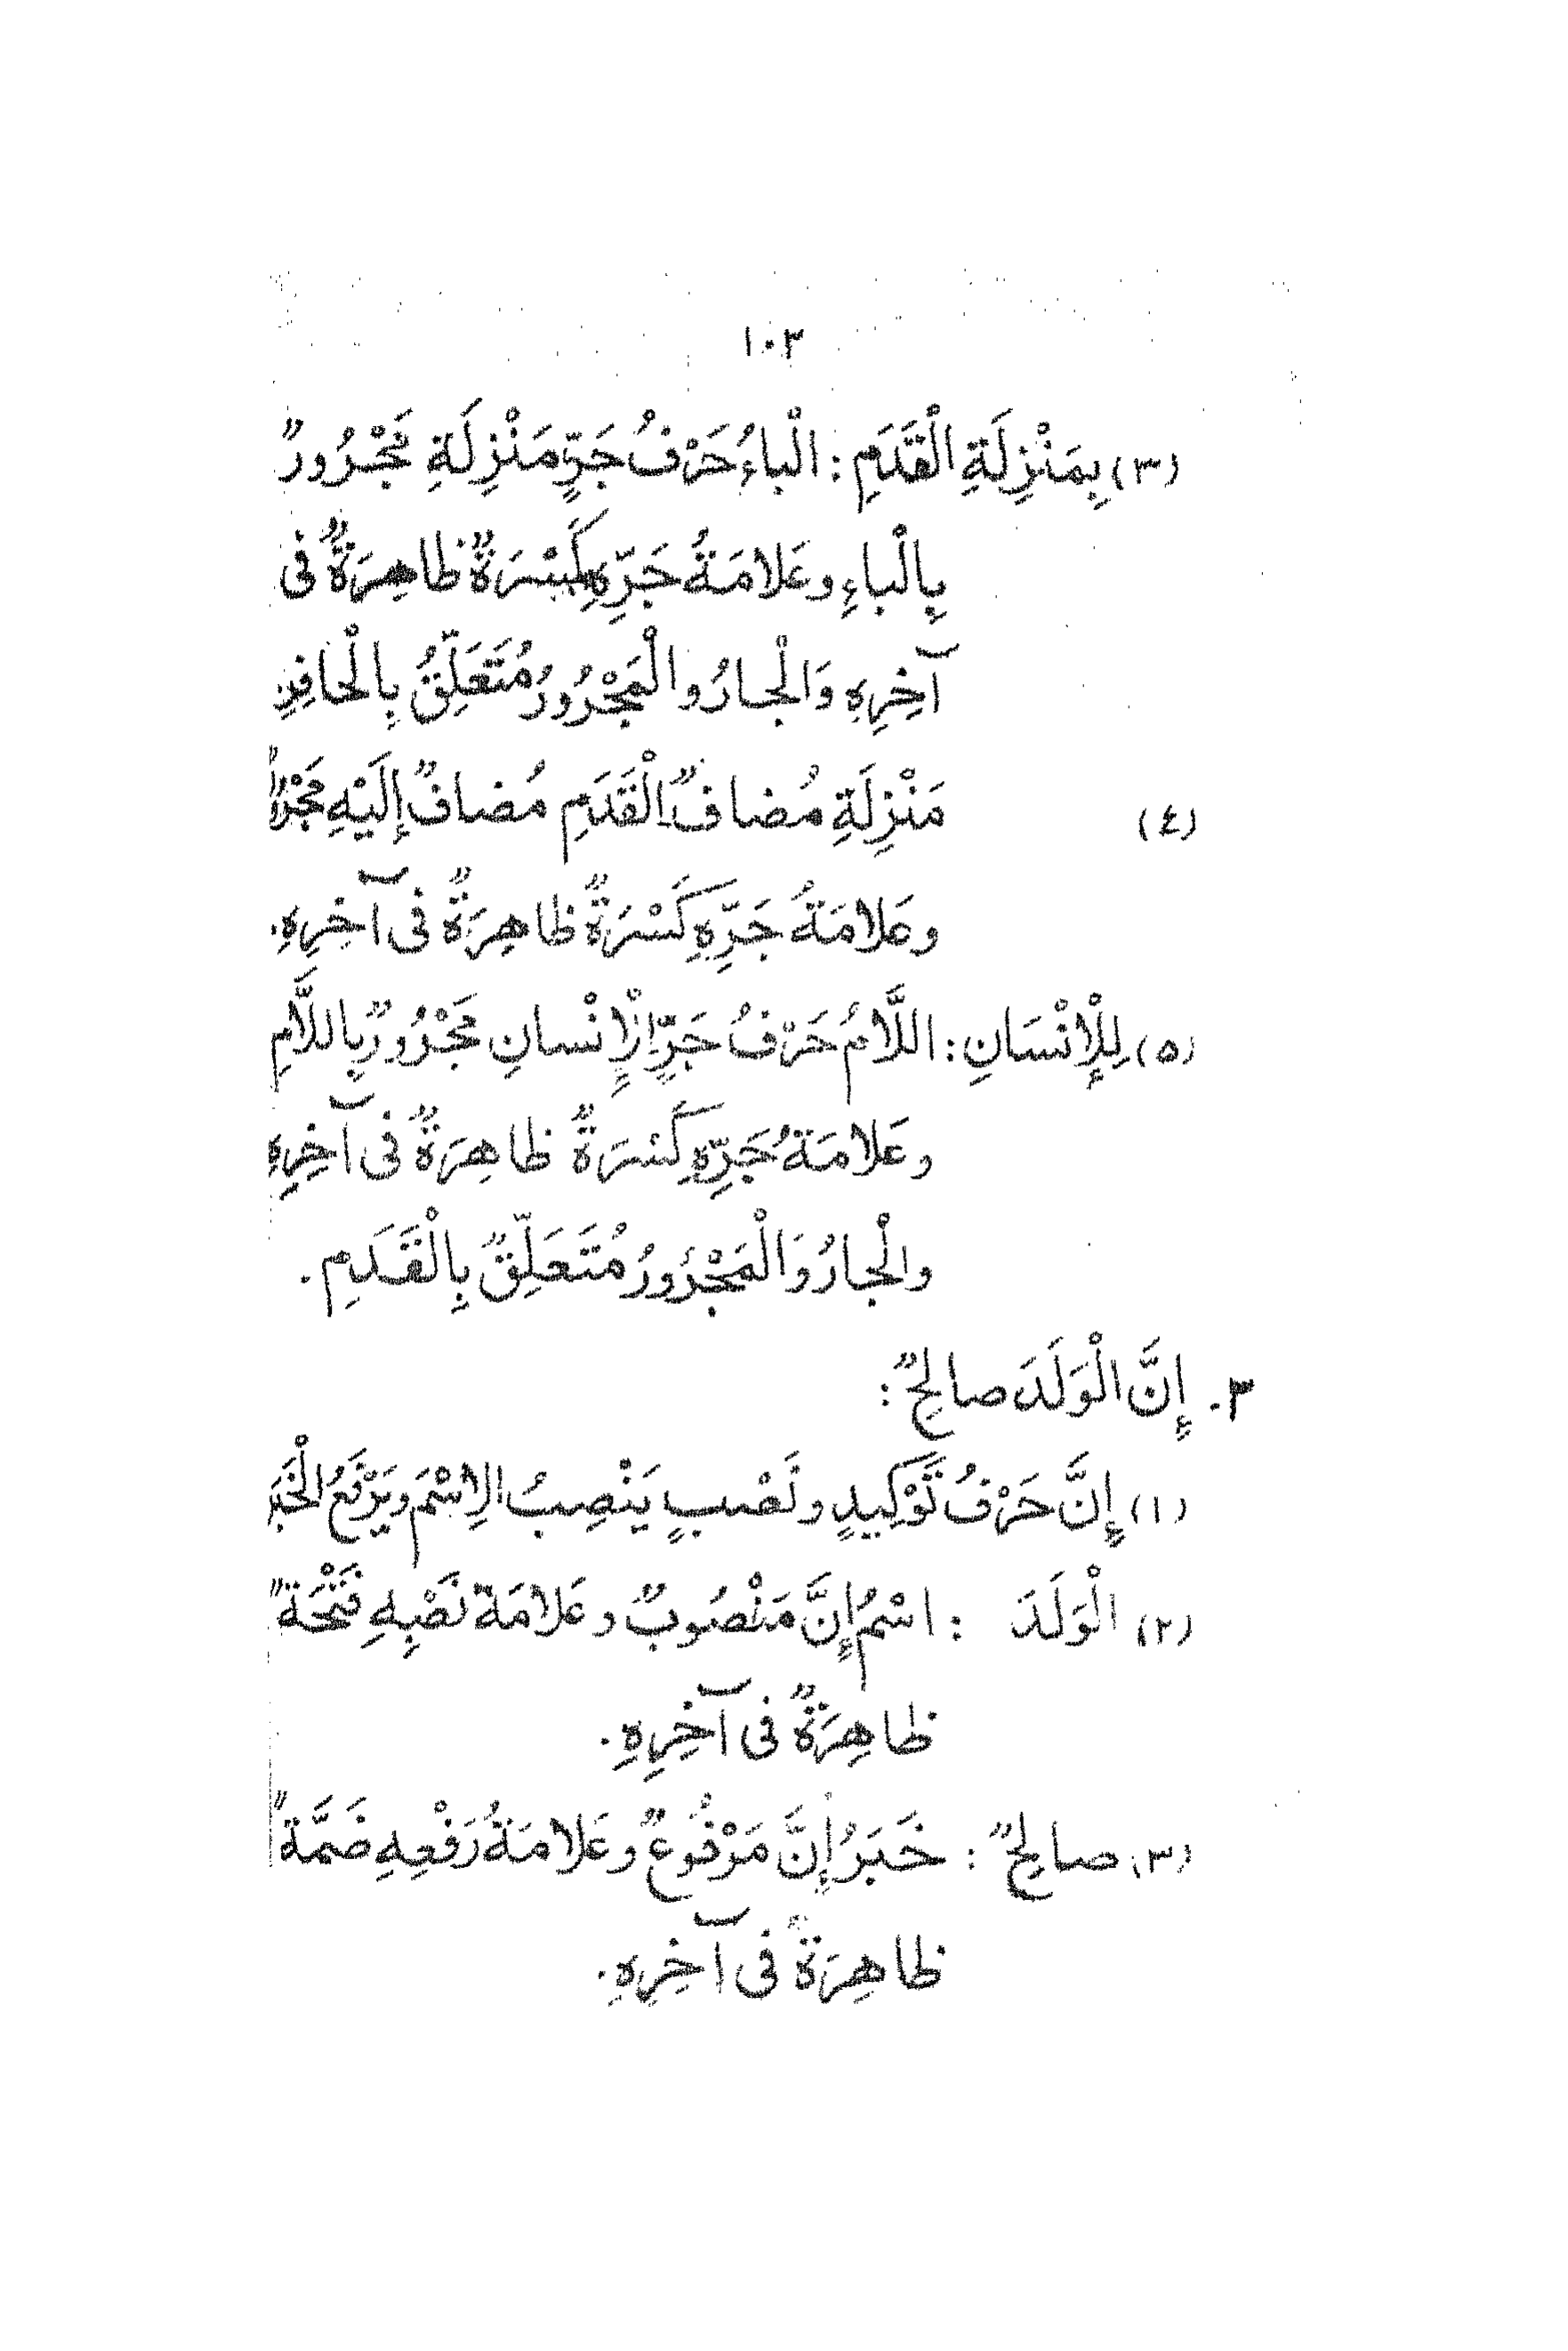 ١٠٣
(٣) بِمَنْزِلَةِ الْقَدَمِ : الْباءُ حَرْفُ جَرٍّ مَنْزِلَةِ مَجْرُورٌ
بِالْباءِ وعَلامَةُ جَرِّهِ كَسْرَةٌ ظاهِرَةٌ فى
آخِرِهِ وَالْجارُ والْمَجْرُورُ مُتَعَلِّقُ بِالْحافِرِ
(٤) مَنْزِلَةِ مُضافٌ الْقَدَمِ مُضافٌ إِلَيْهِ
وعَلامَةُ جَرِّهِ كَسْرَةٌ ظاهِرَةٌ فى آخِرِهِ.
(٥) لِلْإِنْسَانِ : اللَّامُ حَرْفُ جَرٍّ الْإِنْسانِ مَجْرُورٌ بِاللَّامِ
وعَلامَةُ جَرِّهِ كَسْرَةٌ ظاهِرَةٌ فى آخِرِهِ
والْجارُ وَالْمَجْرُورُ مُتَعَلِّقٌ بِالْقَدَمِ.
٣. إِنَّ الْوَلَدَ صالِحٌ :
(١) إِنَّ حَرْفُ تَوْكِيدٍ ونَصْبٍ يَنْصِبُ الِاسْمَ ويَرْفَعُ الْخَبَرَ
(٢) الْوَلَدَ : اسْمُ إِنَّ مَنْصُوبٌ وعَلامَة نَصْبِهِ فَتْحَةٌ
ظاهِرَةٌ فى آخِرِهِ.
(٣) صالِحٌ : خَبَرُ إِنَّ مَرْفُوعٌ وعَلامَةُ رَفْعِهِ ضَمَّةٌ
ظاهِرَةٌ فى آخِرِهِ.